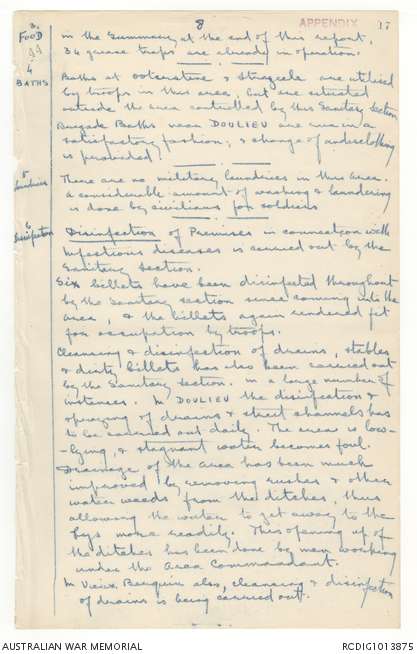 8 APPENDIX 17
3.
FOOD
in the Summary at the end of this report,
34 grease traps are already in operation.
4
BATHS
Baths at Outersteene & Strazeele are utilised
by troops in this area, but are situated
outside the area controlled by this Sanitary Section
Brigade Baths near DOULIEU are run in a
satisfactory fashion; & change of underclothing
is provided.
5
Laundries
There are no military laundries in this area.
A considerable amount of washing & laundering
is done by civilians for soldiers
6
Disinfection
Disinfection of Premises in connection with
Infectious diseases is carried out by the
Sanitary Section.
Six billets have been disinfected throughout
by the Sanitary Section since coming into the
area, & the billets again rendered fit
for occupation by troops.
Cleansing & disinfection of drains, stables
& dirty billets has also been carried out
by the Sanitary Section in a large number of
instances. In DOULIEU the disinfection &
spraying of drains & street channels has
to be carried out daily. The area is low-
-lying, & stagnant water becomes foul.
Drainage of the area has been much
improved by removing rushes & other
water weeds from the ditches, thus
allowing the water to get away to the
Lys more readily. This opening up of
the ditches has been done by men working
under the Area Commandant.
In Vieux Berquin also, cleansing & disinfection
of drains is being carried out.
AUSTRALIAN WAR MEMORIAL RCDIG1013875